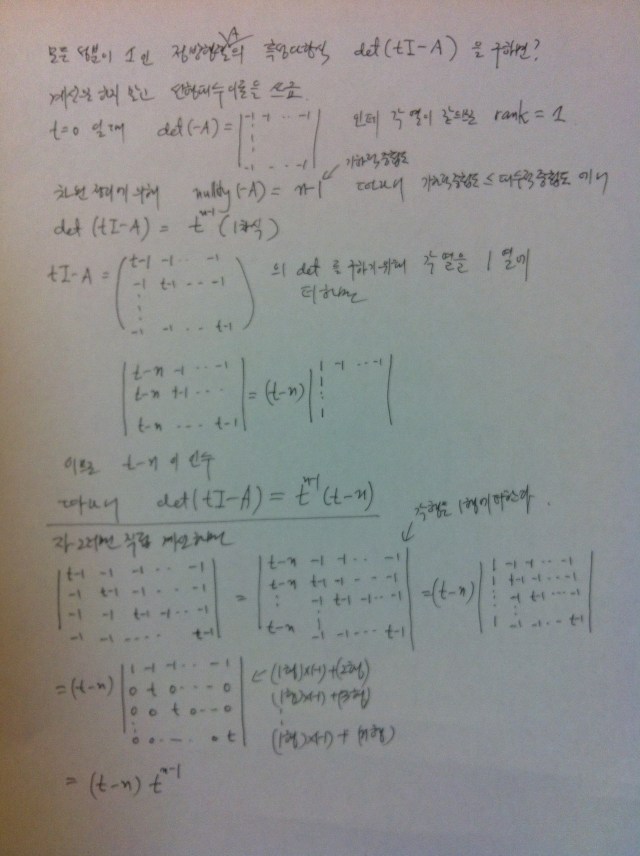 모든 성분이 1인 정방행렬의 특성다항식 det(tI-A) 을 구하면?
A
계산을 하지 않고 인수 쓰고
t=0 일때 det(-A) = | -1 -1 ·· -1 ⋮ -1 ·· -1 | 인데 각 열이 같으므로 rank = 1
기하적중복도
차원 정리에 의해 nullity(-A) = n-1 따라서 기하적중복도 ≤ 대수적중복도 이니
det (tI-A) = t^{n-1} (1차식)
tI-A = ( t-1 -1 ·· -1 / -1 t-1 ·· -1 / ⋮ / -1 -1 ·· t-1 ) 의 det 를 구하기 위해 각 열을 1열에
더하면
| t-n -1 ·· -1 / t-n t-1 ·· / t-n ·· t-1 | = (t-n) | 1 -1 ·· -1 / 1 / ⋮ / 1 |
이므로 t-n 이 인수
따라서 det(tI-A) = t^{n-1} (t-n)
자 그러면 직접 계산하면
각 행을 1행에
| t-1 -1 -1 ·· -1 / -1 t-1 -1 ·· -1 / -1 -1 t-1 ·· -1 / -1 -1 ···· t-1 | = | t-n -1 -1 ·· -1 / t-n t-1 -1 ·· -1 / ⋮ -1 t-1 -1 ·· -1 / t-n -1 -1 ·· t-1 | = (t-n) | 1 -1 -1 ·· -1 / 1 t-1 -1 ·· -1 / ⋮ -1 t-1 ·· -1 / 1 -1 -1 ·· t-1 |
= (t-n) | 1 -1 -1 ·· -1 / 0 t 0 ··· 0 / 0 0 t 0 ·· 0 / ⋮ / 0 0 ·· 0 t | ← (1행)×(-1) + (2행)
(1행)×(-1) + (3행)
⋮
(1행)×(-1) + (n행)
= (t-n) t^{n-1}